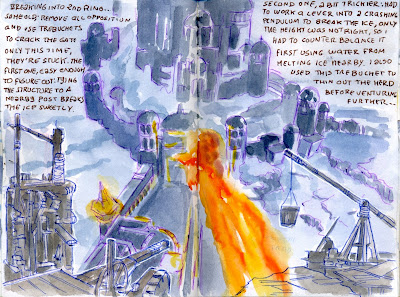 BREAKING INTO 2ND RING...
SOMEHOW: REMOVE ALL OPPOSITION
AND USE TREBUCHETS
TO CRACK THE GATE
ONLY THIS TIME,
THEY'RE STUCK. THE
FIRST ONE, EASY ENOUGH
TO FIGURE OUT: TYING
THE STRUCTURE TO A
NEARBY POST BREAKS
THE ICE SURELY.
SECOND ONE, A BIT TRICKIER. HAD
TO WORK A LEVER INTO A CRASHING
PENDULUM TO BREAK THE ICE, ONLY
THE HEIGHT WAS NOT RIGHT, SO I
HAD TO COUNTER BALANCE IT
FIRST USING WATER FROM
MELTING ICE NEARBY. I ALSO
USED THIS TREBUCHET TO
THIN OUT THE HERD
BEFORE VENTURING
FURTHER..